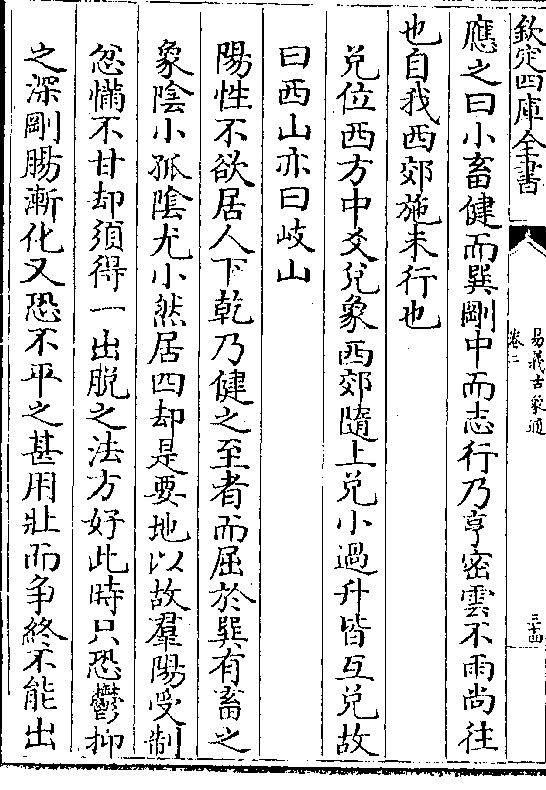 欽定四庫全書
易義古象通
卷二
三十四
應之曰小畜健而巽剛中而志行乃亨密雲不雨尚往
也自我西郊施未行也
兌位西方中爻兌象西郊隨上兌小過升皆互兌故
曰西山亦曰岐山
陽性不欲居人下乾乃健之至者而屈於巽有畜之
象陰小孤陰尤小然居四却是要地以故羣陽受制
忿懣不甘却須得一出脫之法方好此時只恐鬱抑
之深剛腸漸化又恐不平之甚用壯而争終不能出